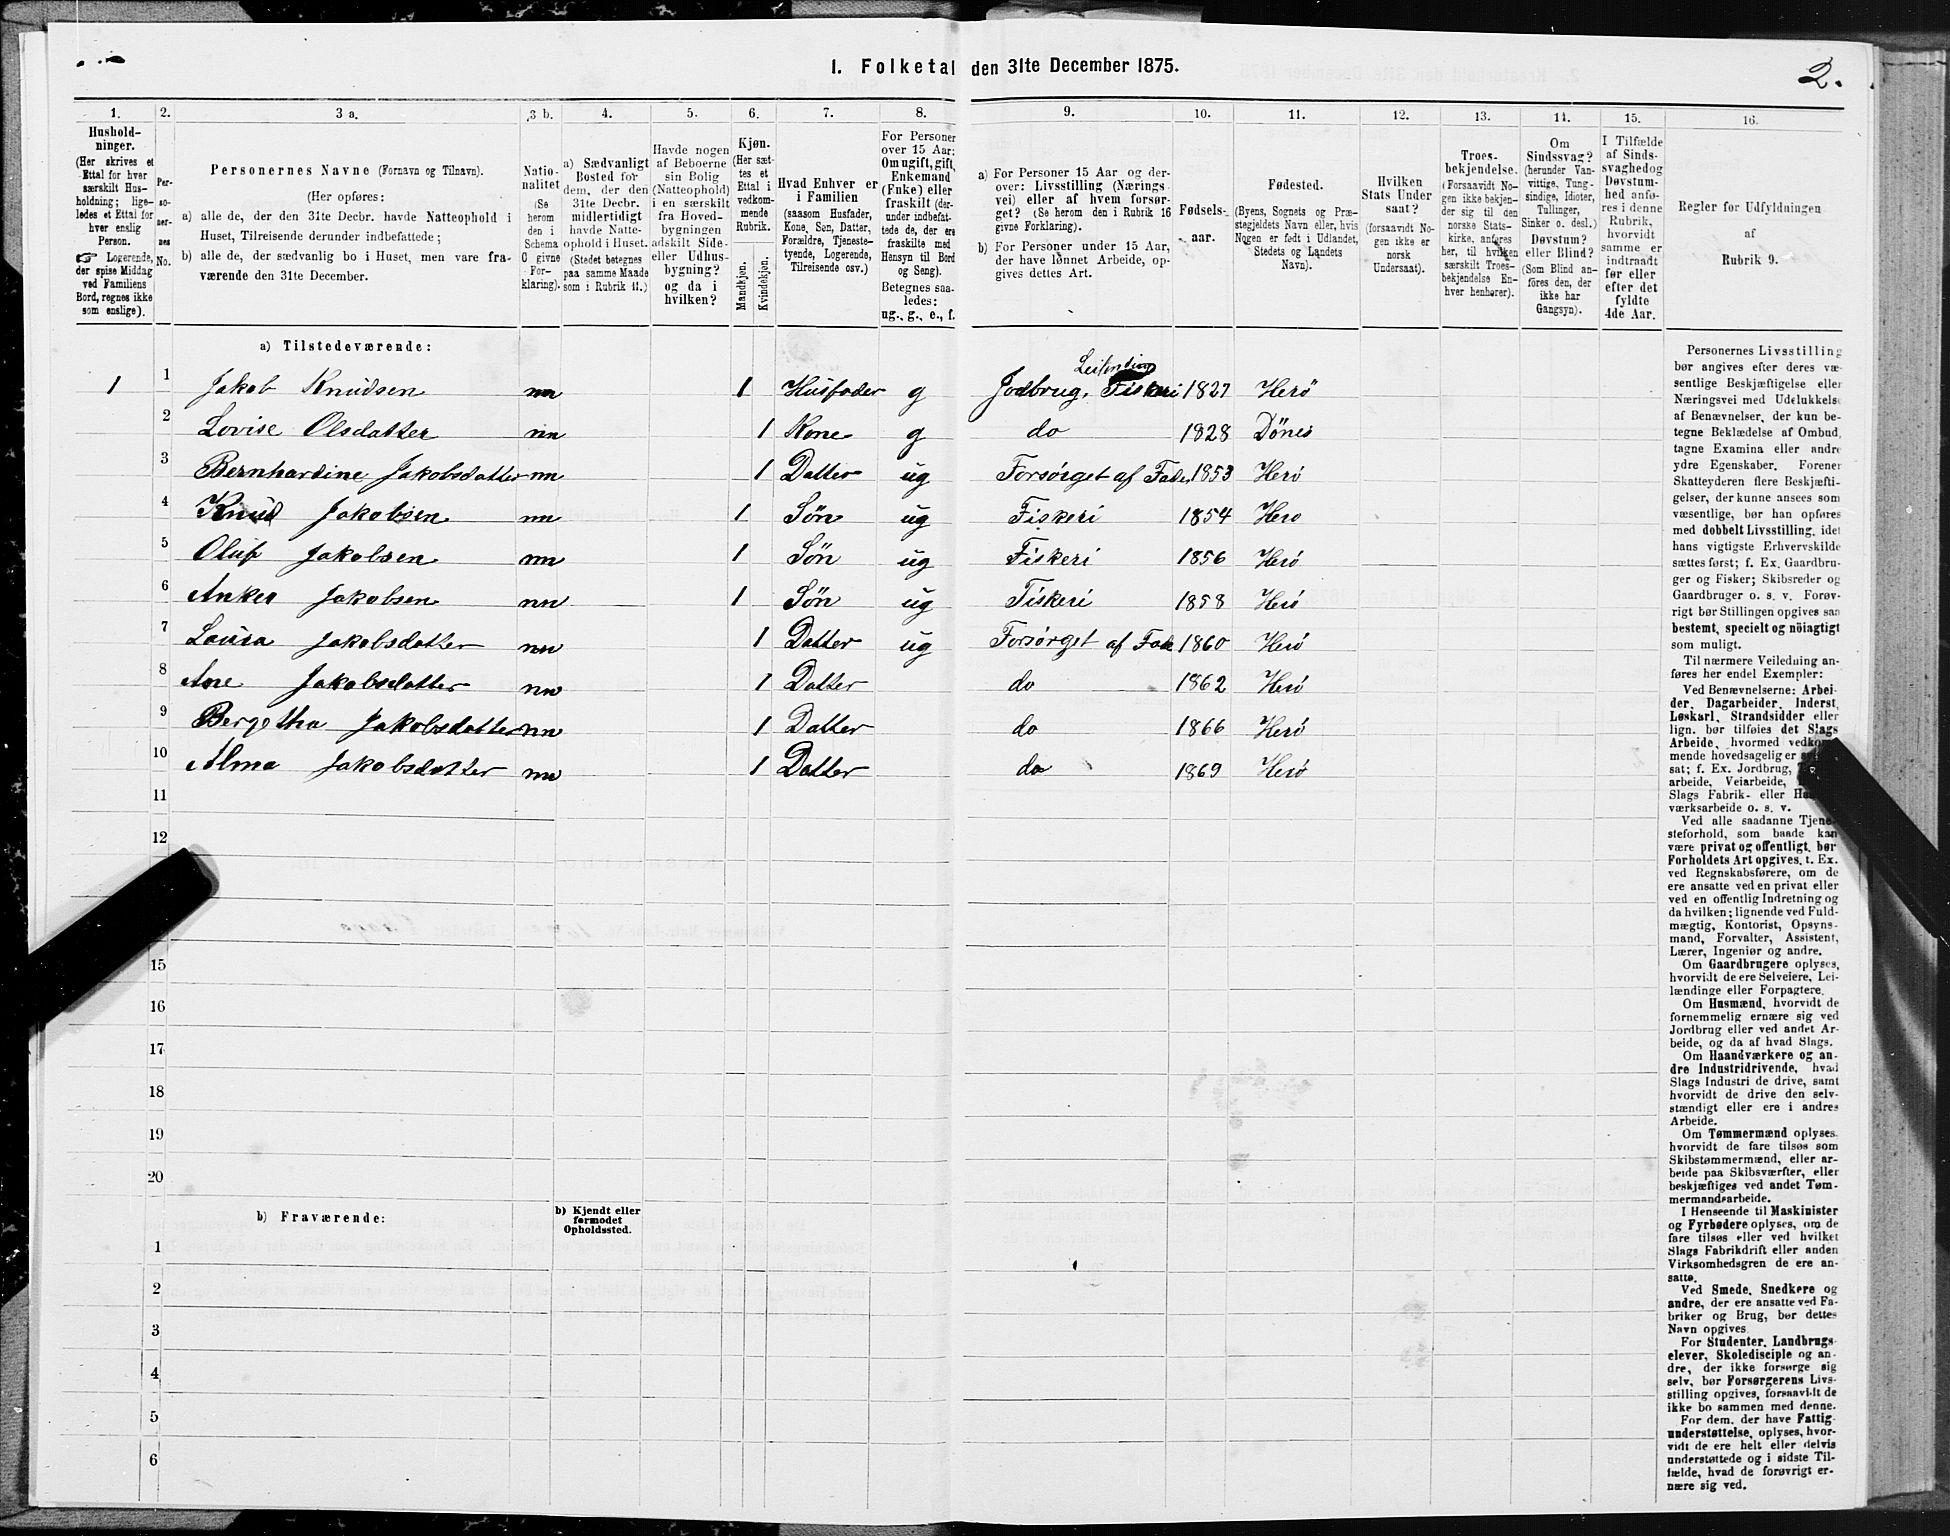 1. Folketal den 31te December 1875.
2.
1.
2.
3 a.
3 b.
4.
5.
6.
7.
8.
9.
10.
11.
12.
13.
14.
15.
16.
Hushold-
ninger.
(Her skrives et
Ettal for hver
særskilt Hus-
holdning; lige-
ledes et Ettal for
hver enslig
Person.
Logerende,
der spise Middag
ved Familiens
Bord, regnes ikke
som enslige).
Per-
so-
ner-
nes
No.
Personernes Navne (Fornavn og Tilnavn).
(Her opføres:
a) alle de, der den 31te Decbr. havde Natteophold i
Huset, Tilreisende derunder indbefattede;
b) alle de, der sædvanlig bo i Huset, men vare fra-
værende den 31te December.
Natio-
nalitet
(Se
herom
den i
Schema
C givne
For-
klaring).
a) Sædvanligt
Bosted for
dem, der den
31te Decbr.
midlertidigt
havde Natte-
ophold i Huset.
(Stedet betegnes
paa samme Maade
som i Rubrik 11.)
Havde nogen
af Beboerne
sin Bolig
(Natteophold)
i en særskilt
fra Hoved-
bygningen
adskilt Side-
eller Udhus-
bygning?
og da i
hvilken?
Kjøn.
(Her sæt-
tes et
Ettal i
vedkom-
mende
Rubrik.
Mandkjøn.
Kvindekjøn.
Hvad Enhver er
i Familien
(saasom Husfader,
Kone, Søn, Datter,
Forældre, Tjeneste-
tyende, Logerende,
Tilreisende osv.)
For Personer
over 15 Aar:
Om ugift, gift,
Enkemand
(Enke) eller
fraskilt (der-
under indbefat-
tede de, der ere
fraskilte med
Hensyn til Bord
og Seng).
Betegnes saa-
ledes:
ug., g., e., f.
a) For Personer 15 Aar og der-
over: Livsstilling (Nærings-
vei) eller af hvem forsør-
get? (Se herom den i Rubrik 16
givne Forklaring).
b) For Personer under 15 Aar,
der have lønnet Arbeide, op-
gives dettes Art.
Fødsels-
aar.
Fødested.
(Byens, Sognets og Præ-
stegjeldets Navn eller, hvis
Nogen er født i Udlandet,
Stedets og Landets
Navn).
Hvilken
Stats Under
saat?
(forsaavidt No-
gen ikke er
norsk
Undersaat).
Troes-
bekjendelse.
(Forsaavidt No-
gen ikke bekjen-
der sig til den
norske Stats-
kirke, anføres
her, til hvilken
særskilt Troes-
bekjendelse En-
hver henhører).
Om
Sindssvag?
(herunder Van-
vittige, Tung-
sindige, Idioter,
Tullinger,
Sinker o. desl.)
Døvstum?
eller Blind?
(Som Blind an-
føres den, der
ikke har
Gangsyn).
I Tilfælde
af Sinds-
svaghed og
Døvstum-
hed anfø-
res i denne
Rubrik,
hvorvidt
samme er
indtraadt
før eller
efter det
fyldte
4de Aar.
Regler for Udfyldningen
af
Rubrik 9.
a) Tilstedeværende:
1 1 Jakob Knudsen nn 1 Husfader g Jodbrug, Leilending Fiskeri 1827 Herö
2 Lovise Olsdatter nn 1 Kone g do 1828 Dönes
3 Bernhardine Jakobsdatter nn 1 Datter ug Forsørget af Fade 1853 Herö
4 Knud Jakobsen nn 1 Søn ug Fiskeri 1854 Hero
5 Oluf Jakobsen nn 1 Søn ug Fiskeri 1856 Herö
6 Anker Jakobsen nn 1 Søn ug Fiskeri 1858 Herö
7 Laura Jakobsdatter nn 1 Datter ug Forsørget af Fade 1860 Herö
8 Ane Jakobsdatter nn 1 Datter do 1862 Herö
9 Bergetha Jakobsdatter nn 1 Datter do 1866 Herö
10 Alma Jakobsdatter nn 1 Datter do 1869 Herö
11
12
15
16
17
18
19
20
b) Fraværende:
b) Kjendt eller
formodet
Opholdssted.
1
2
3
4
5
6
Personernes Livsstilling
bør angives efter deres væ-
sentlige Beskjæftigelse eller
Næringsvei med Udelukkelse
af Benævnelser, der kun be-
tegne Beklædelse af Ombud,
tagne Examina eller andre
ydre Egenskaber. Forener
Skatteyderen flere Beskjæfti-
gelser, der kunne ansees som
væsentlige, bør han opføres
med dobbelt Livsstilling, idet
hans vigtigste Erhvervskilde
sættes først; f. Ex. Gaardbru-
ger og Fisker; Skibsreder og
Gaardbruger o. s. v. Forøv-
rigt bør Stillingen opgives saa
bestemt, specielt og nöiagtigt
som muligt.
Til nærmere Veiledning an-
føres her endel Exempler:
Ved Benævnelserne: Arbei-
der, Dagarbeider, Inderst,
Løskarl, Strandsidder eller
lign. bør tilføies det Slags
Arbeide, hvormed
mende hovedsagelig er
sat; f. Ex. Jordbrug,
arbeide, Veiarbeide,
Slags Fabrik- eller
værksarbeide o. s. v.
Ved alle saadanne Tjene-
steforhold, som baade kan
være privat og offentligt, bør
Forholdets Art opgives, t. Ex.
ved Regnskabsførere, om de
ere ansatte ved en privat eller
ved en offentlig Indretning og
da hvilken; lignende ved Fuld-
mægtig, Kontorist, Opsyns-
mand, Forvalter, Assistent,
Lærer, Ingeniør og andre.
Om Gaardbrugere oplyses,
hvorvidt de ere Selveiere, Lei-
lændinge eller Forpagtere.
Om Husmænd, hvorvidt de
fornemmelig ernære sig ved
Jordbrug eller ved andet Ar-
beide, og da af hvad Slags.
Om Haandværkere og an-
dre Industridrivende, hvad
Slags Industri de drive, samt
hvorvidt de drive den selv-
stændigt eller ere i andres
Arbeide.
Om Tømmermænd oplyses,
hvorvidt de fare tilsøs som
Skibstømmermænd, eller ar-
beide paa Skibsværfter, eller
beskjæftiges ved andet Tøm-
mermandsarbeide.
I Henseende til Maskinister
og Fyrbødere oplyses, om de
fare tilsøs eller ved hvilket
Slags Fabrikdrift eller anden
Virksomhedsgren de ere an-
satte.
Ved Smede, Snedkere og
andre, der ere ansatte ved Fa-
briker og Brug, bør dettes
Navn opgives.
For Studenter, Landbrugs-
elever, Skoledisciple og an-
dre, der ikke forsørge sig
selv, bør Forsørgerens Livs-
stilling opgives, forsaavidt de
ikke bo sammen med denne.
For dem, der have Fattig-
understøttelse, oplyses, hvor-
vidt de ere helt eller delvis
understøttede og i sidste Til-
fælde, hvad de forøvrigt er-
nære sig ved.